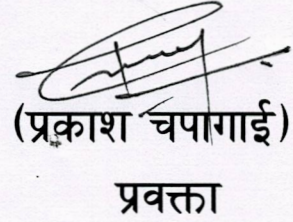 (प्रकाश चपागाई)
प्रवक्ता